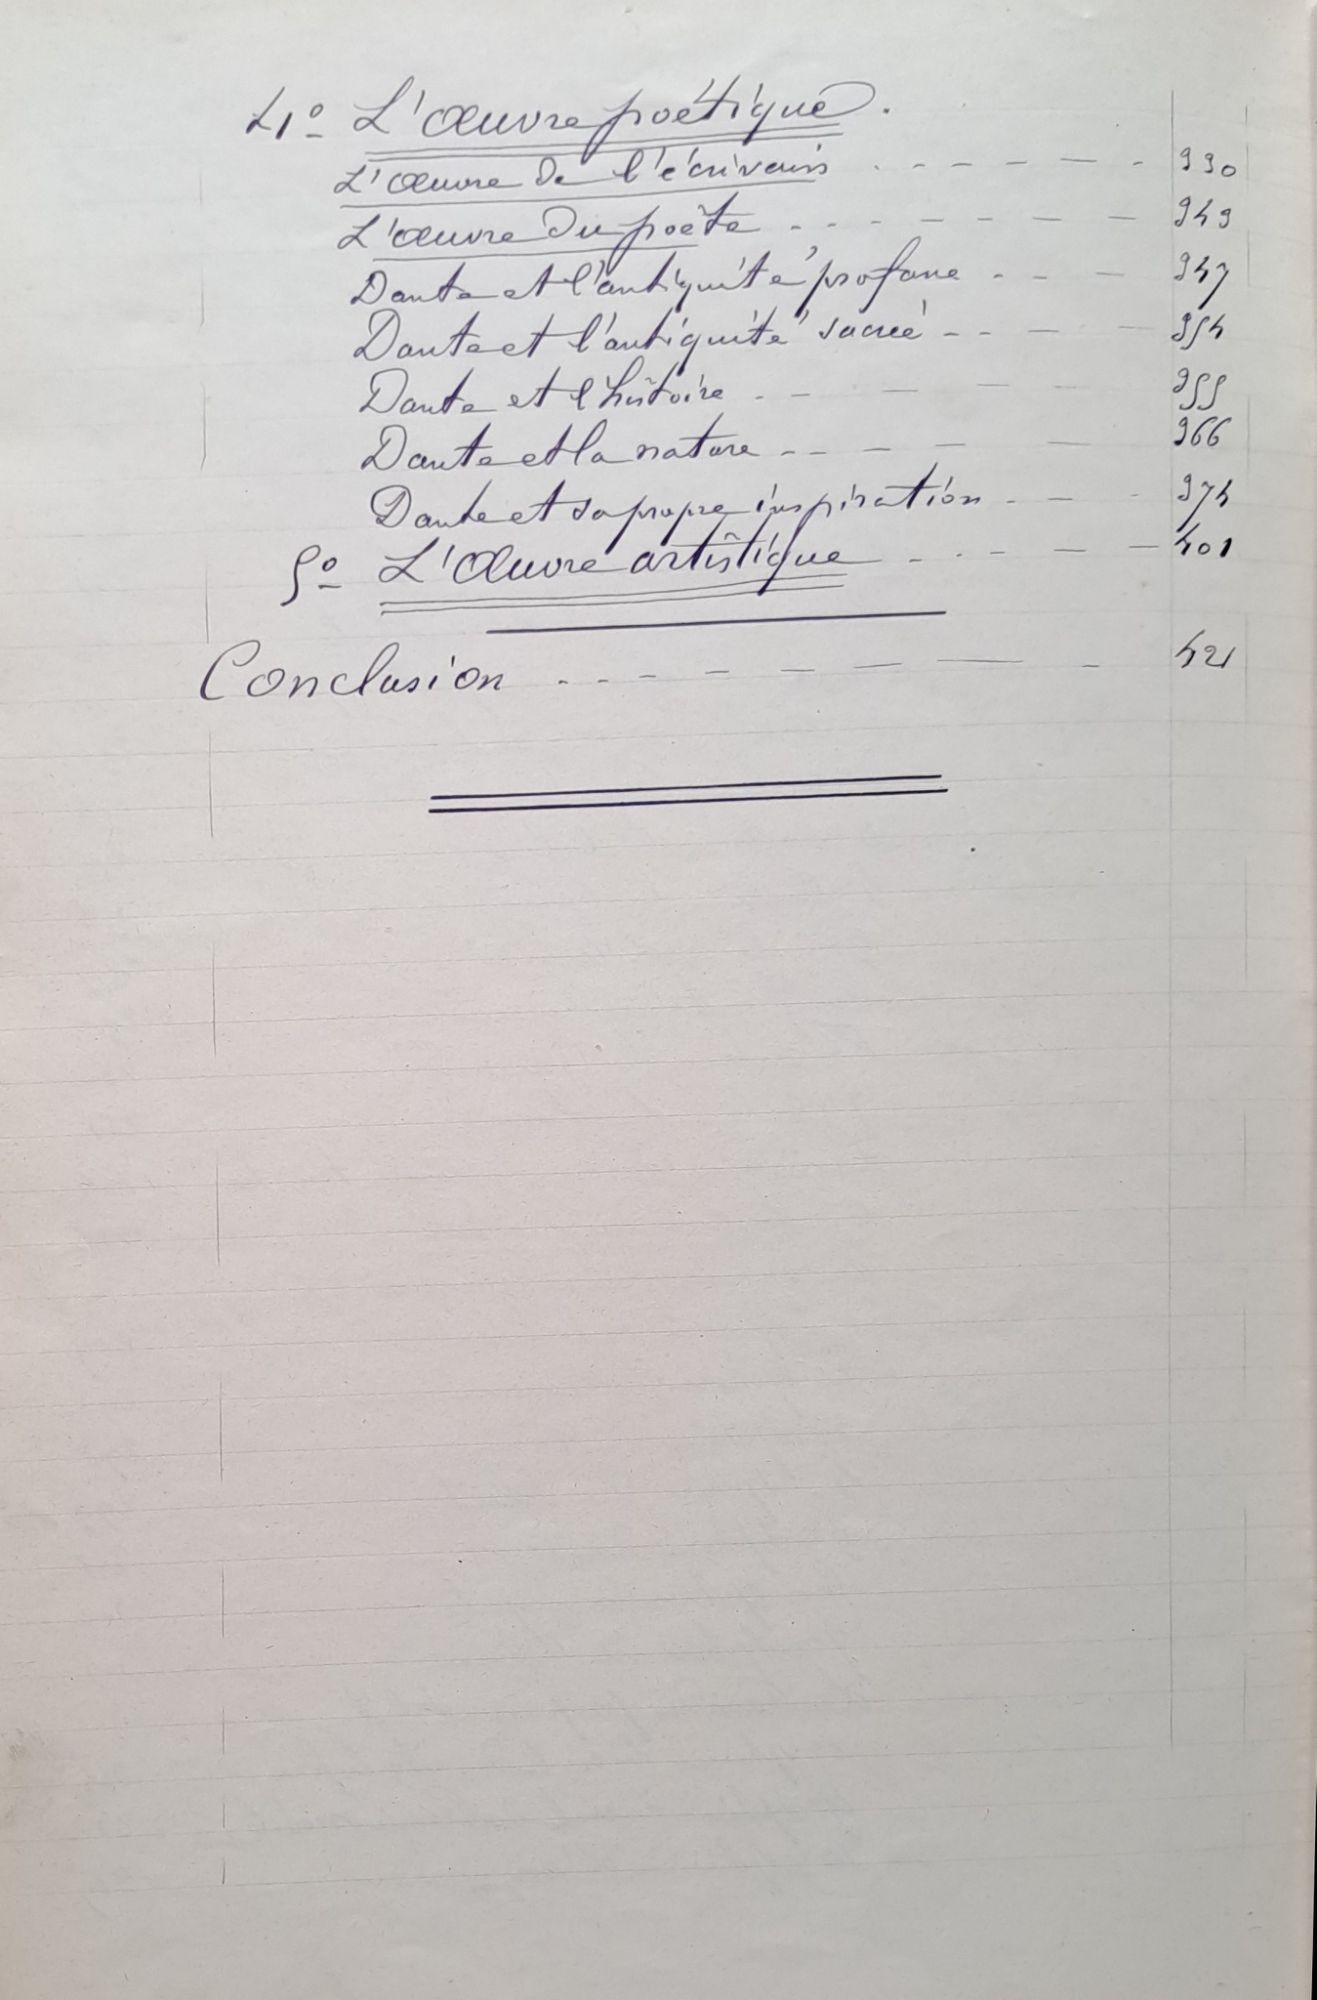 4° L'Œuvre poétique.
L'œuvre de l'écrivain - - - - - - 330
L'œuvre du poète - - - - - - - 343
Dante et l'antiquité profane - - - 347
Dante et l'antiquité sacrée - - - - 354
Dante et l'histoire - - - - - 355
Dante et la nature - - - - - 366
Dante et sa propre inspiration - - - 374
5° L'Œuvre artistique - - - - - 401
Conclusion - - - - - - - - 421